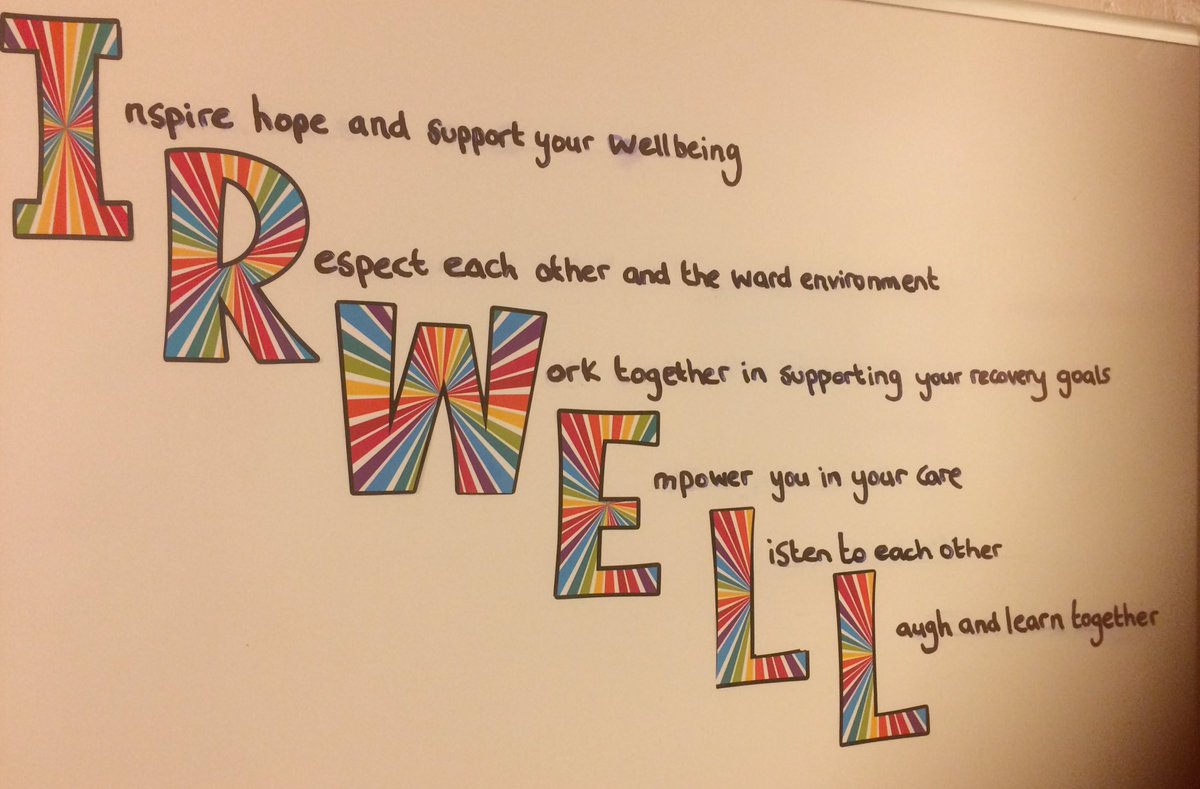 Inspire hope and support your wellbeing
Respect each other and the ward environment
Work together in supporting your recovery goals
Empower you in your care
Listen to each other
Laugh and learn together